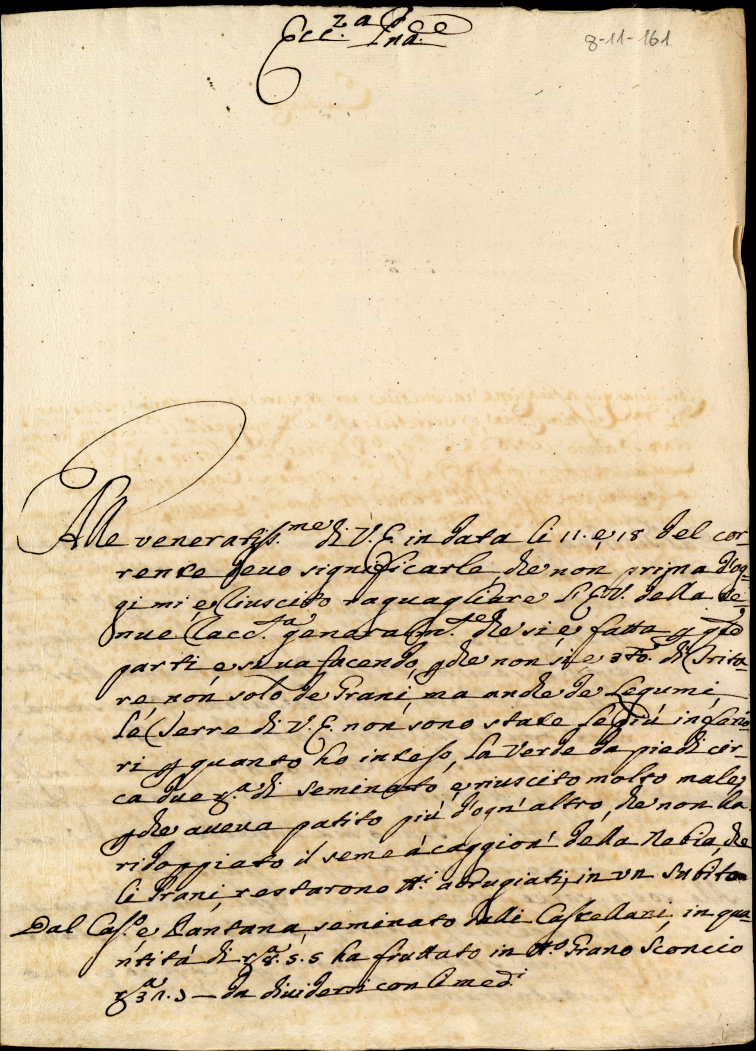 Ecc.za Pnā.
8-11-161
Alle veneratiss.me di V.E. in data li 11. e 18 del cor-
rente devo significarle, che non prima d'og-
gi mi è riuscito raguagliare l'E.V. della te-
nue Racc.ta genaralm.te che si è fatta
parti e si va facendo, che non si è di Trita-
re non solo de Grani, ma anche de Legumi,
le Terre di V.E. non sono state le più inferio-
ri p quanto ho inteso, la Verde da piedi cir-
ca due di seminato è riuscito molto male
p che aveva patito più d'ogn'altro, che non ha
ridoppiato il seme à caggion' della Nebia, che
li Grani restarono tt.i abrugiati, in un subito
Dal Cas.o e Dantana, seminato dalli Castellari in qua-
ntità di 5.5 ha fruttato in tt.o Grano Sconcio
da dividersi con li med.i